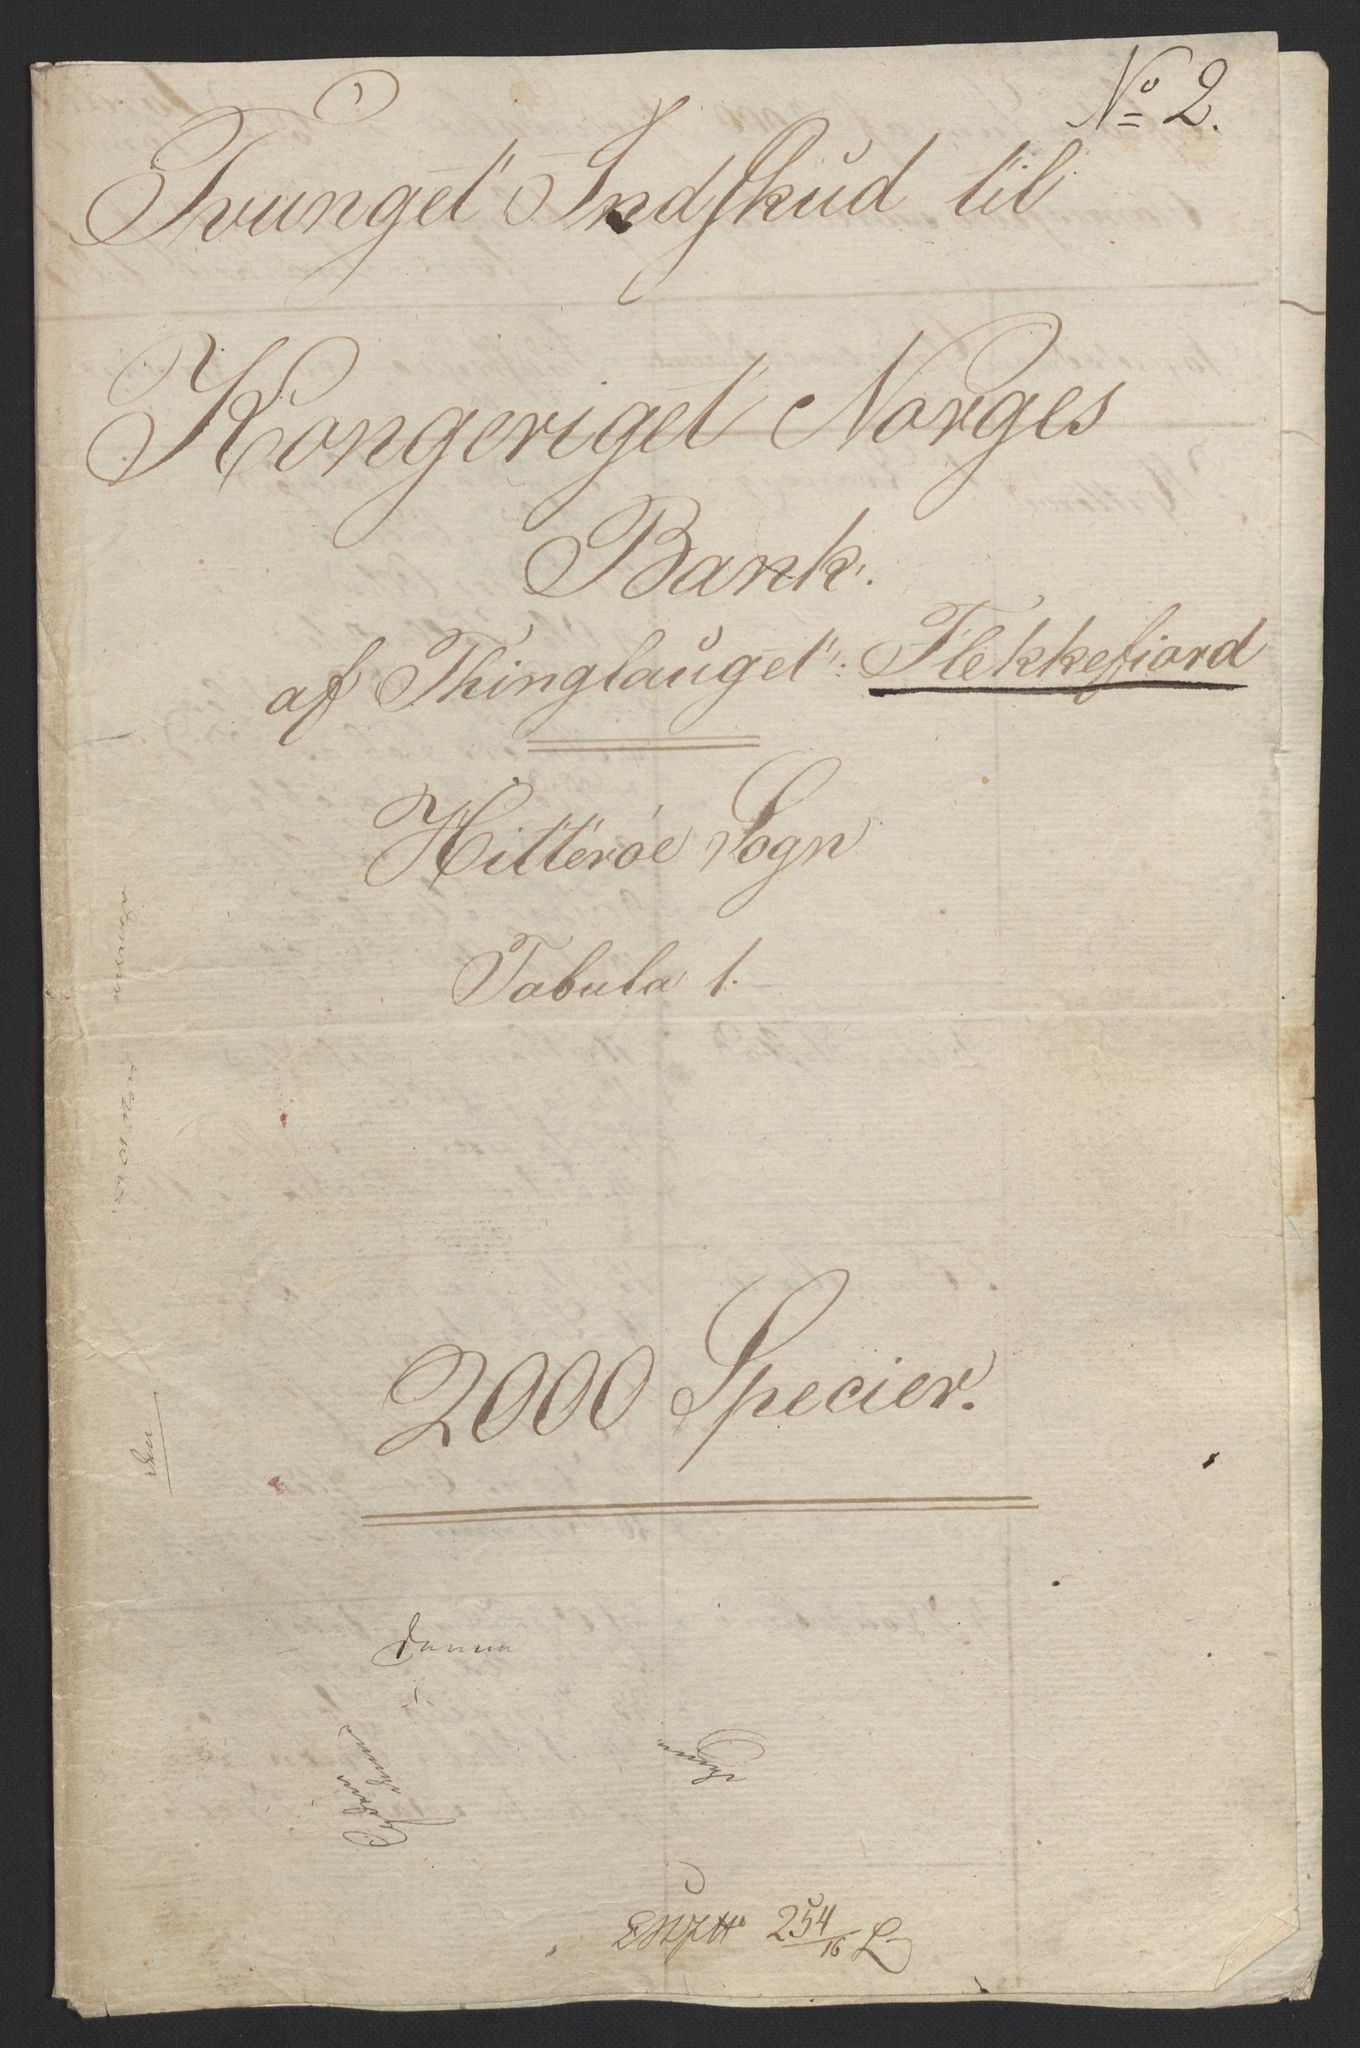 No 2.
Tvunget Indskud til
Kongeriget Norges
Bank.
af Thinglauget: Flekkefiord
Hitterøe Sogn
Tabula 1.
2000 Specier.
den
denne
254/16